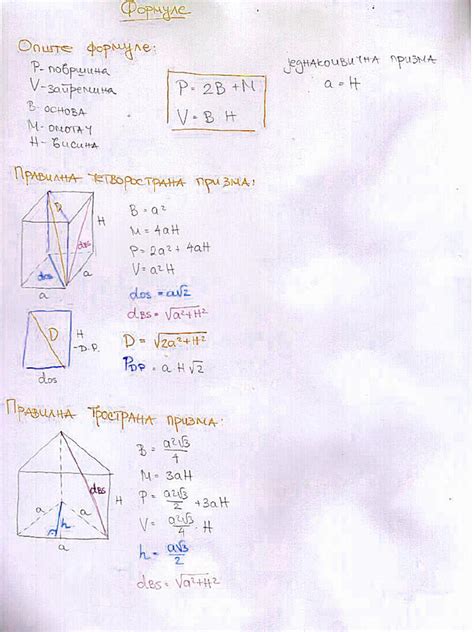 Формуле
Опште формуле:
P- површина
V- запремина
B- основа
M- омотач
H- висина
P = 2B + M
V = B H
једнакоивична призма
a = H
Правилна четворострана призма:
D
H
dBS
dos
a
a
B = a²
M = 4aH
P = 2a² + 4aH
V = a²H
dos = a√2
dBS = √a²+H²
D = √2a²+H²
PDP = a H √2
D
H
-D.P.
dos
Правилна тространа призма:
dBS
H
a
a
h
a
B = a²√3/4
M = 3aH
P = a²√3/2 + 3aH
V = a²√3/4 · H
h = a√3/2
dBS = √a²+H²